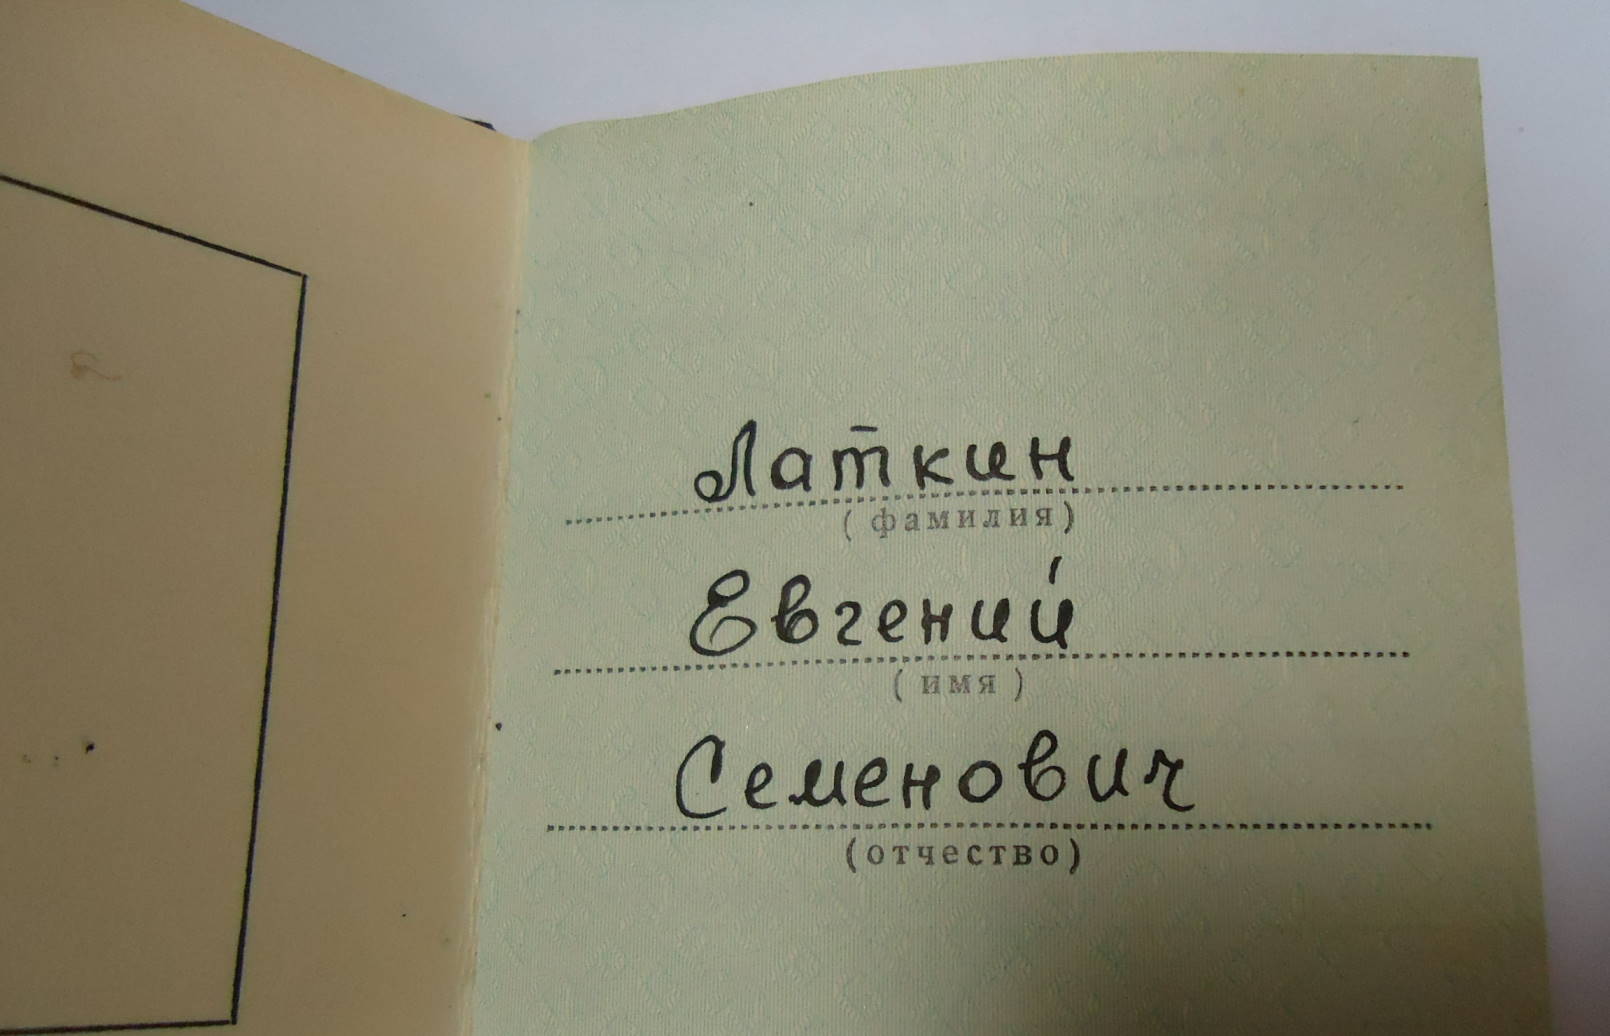 Латкин
(фамилия)
Евгений
(имя)
Семенович
(отчество)